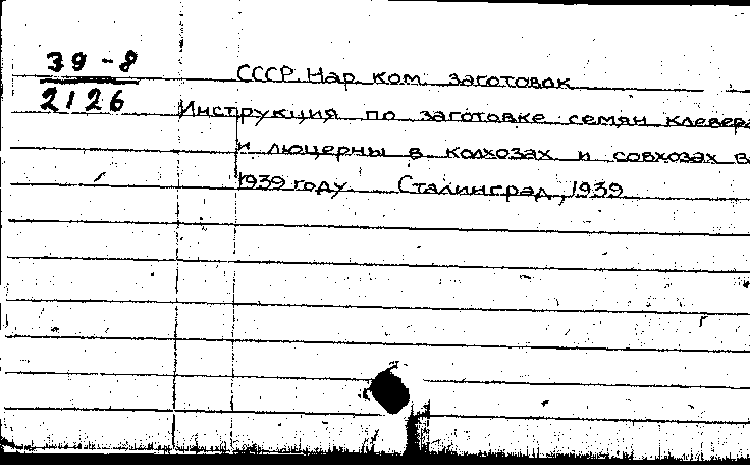 39-8
2126
СССР. Нар. ком. заготовок
Инструкция по заготовке семян клевера
и люцерны в колхозах и совхозах в
1939 году. Сталинград, 1939